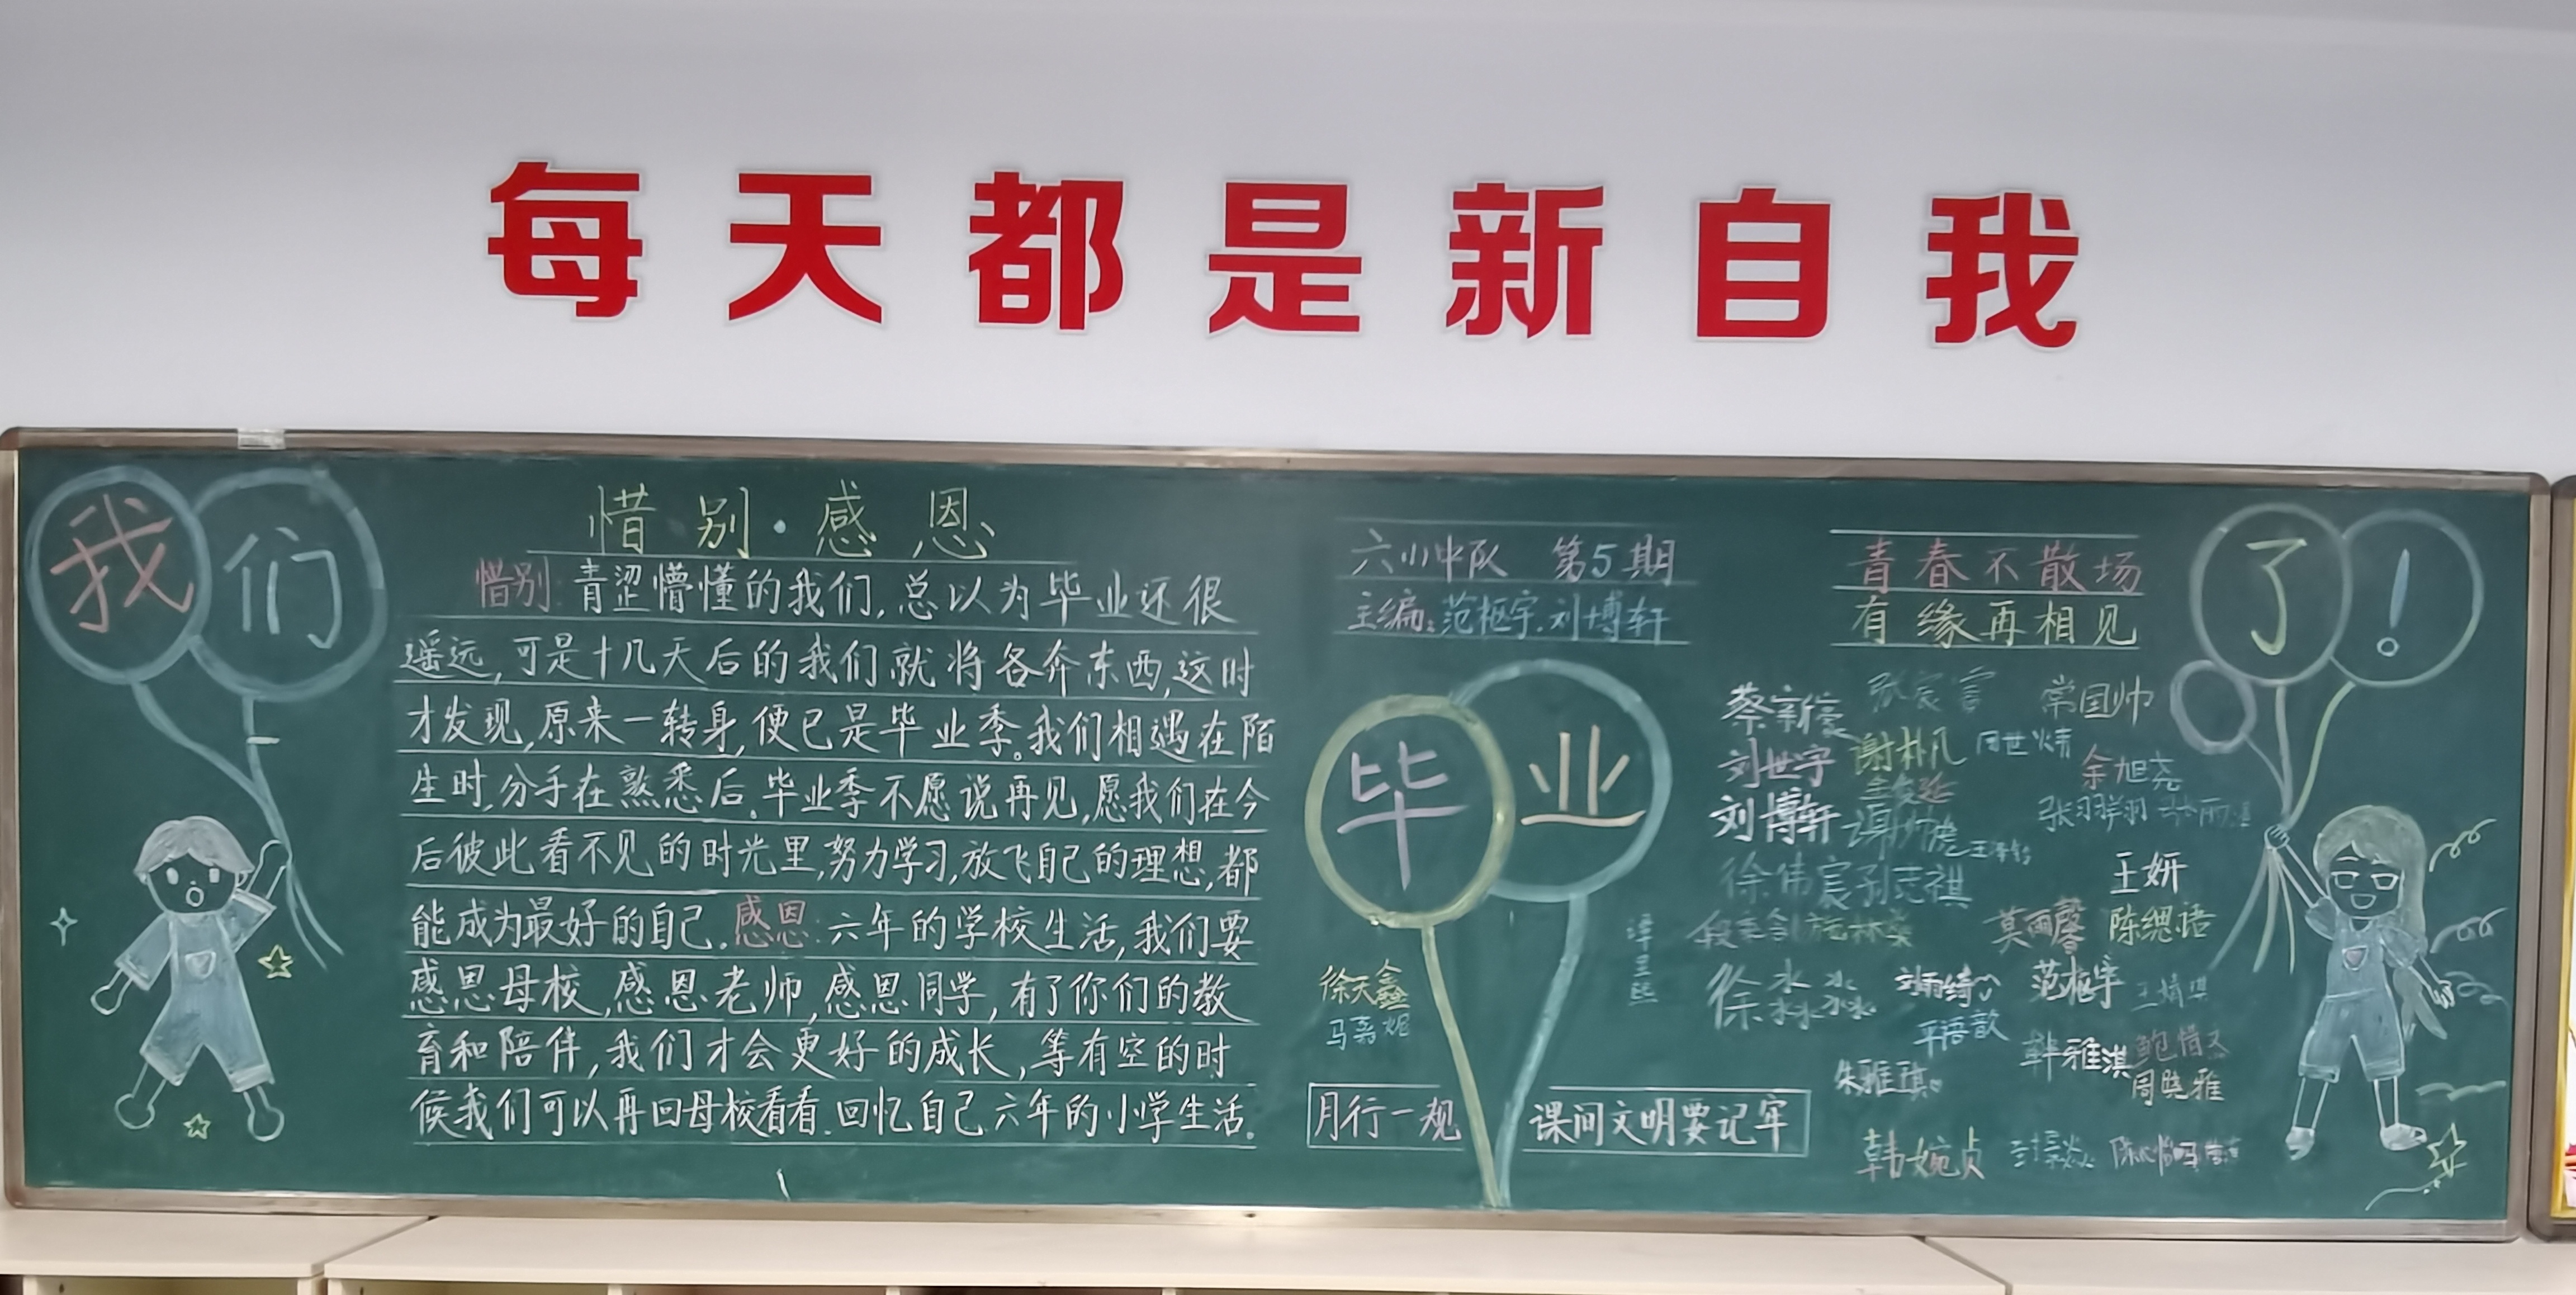 每天都是新自我
我们
惜别·感恩
惜别:青涩懵懂的我们,总以为毕业还很
遥远,可是十几天后的我们就将各奔东西,这时
才发现,原来一转身,便已是毕业季。我们相遇在陌
生时,分手在熟悉后。毕业季不愿说再见,愿我们在今
后彼此看不见的时光里,努力学习,放飞自己的理想,都
能成为最好的自己。感恩:六年的学校生活,我们要
感恩母校,感恩老师,感恩同学,有了你们的教
育和陪伴,我们才会更好的成长,等有空的时
候我们可以再回母校看看.回忆自己六年的小学生活。
六(1)中队 第5期
主编:范枢宇.刘博轩
毕业
徐天鑫
月行一规 课间文明要记牢
青春不散场
有缘再相见
了!
常国帅
刘世宇
谢朴凡
余旭尧
刘博轩
王妍
徐伟宸
孙志祺
莫雨馨
陈缌语
徐淼淼
刘雨绮
范枢宇
平语歆
韩雅淇
朱雅琪
周晓雅
韩婉贞